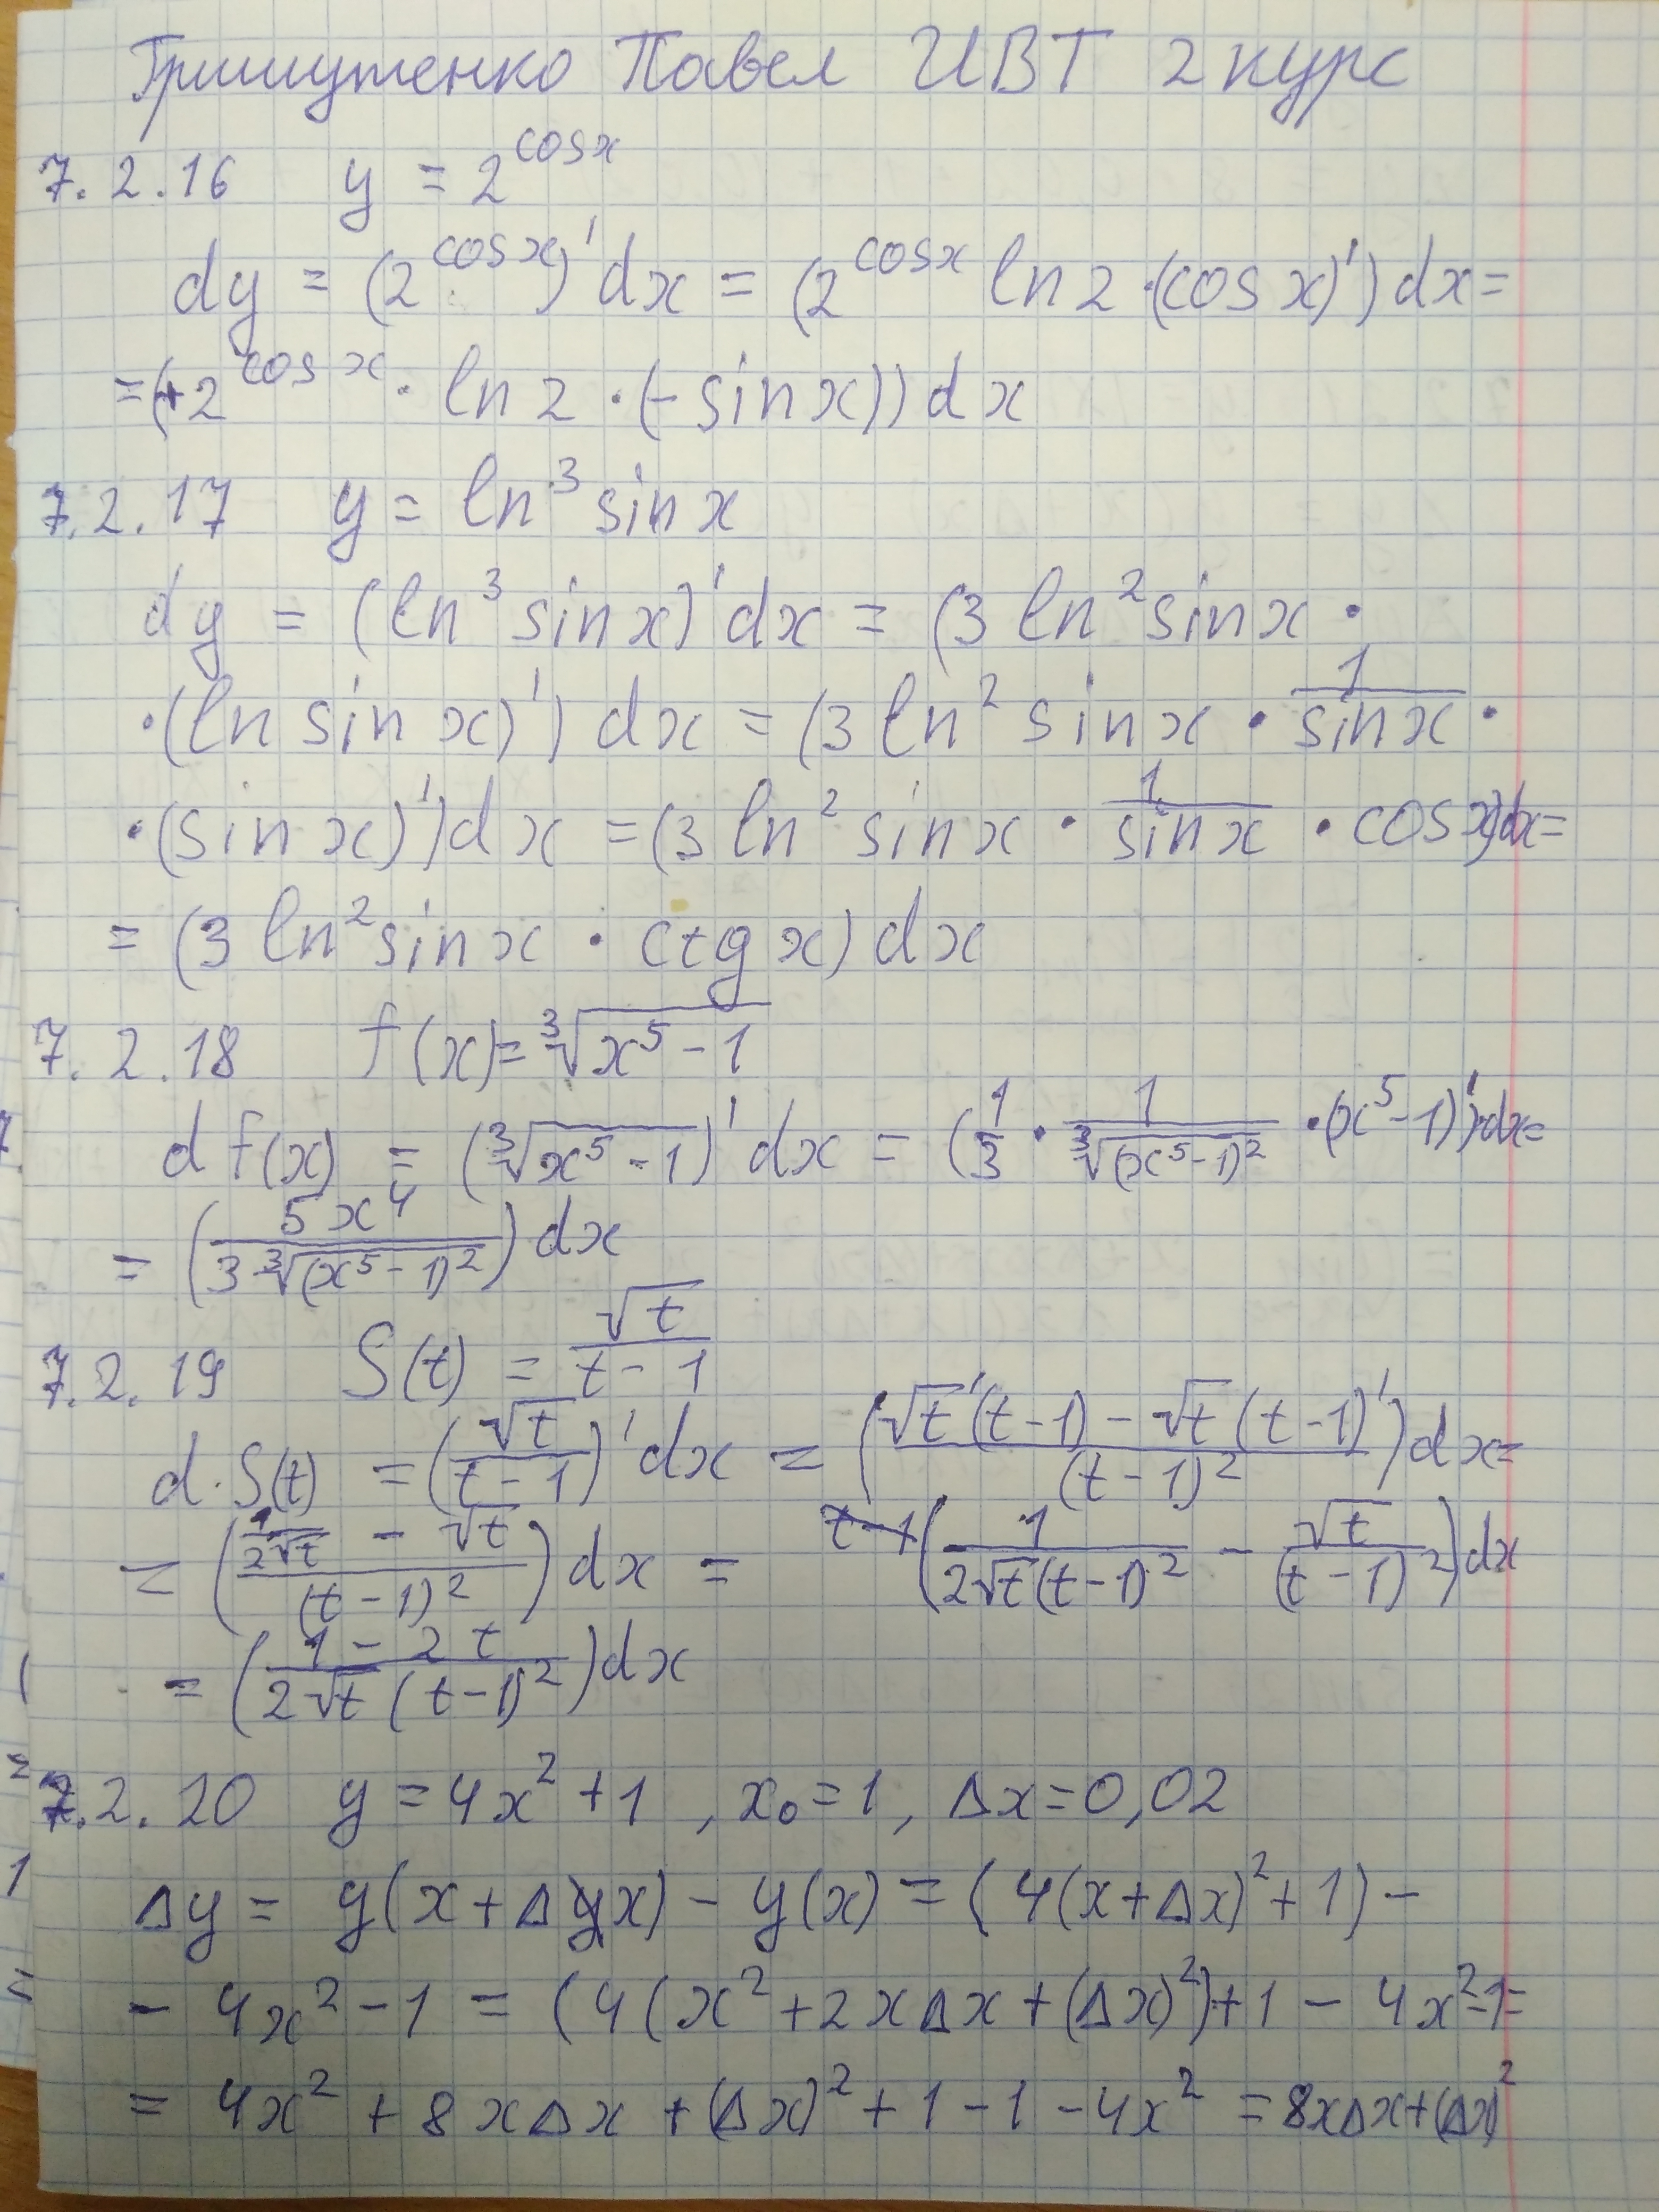 Гришутенко Павел ИВТ 2 курс
7.2.16 y = 2^{cos x}
dy = (2^{cos x})' dx = (2^{cos x} ln 2 · (cos x)') dx =
= (+2^{cos x} · ln 2 · (- sin x)) dx
7.2.17 y = ln^3 sin x
dy = (ln^3 sin x)' dx = (3 ln^2 sin x ·
· (ln sin x)') dx = (3 ln^2 sin x · \frac{1}{sin x} ·
· (sin x)') dx = (3 ln^2 sin x · \frac{1}{sin x} · cos x) dx =
= (3 ln^2 sin x · ctg x) dx
7.2.18 f(x) = \sqrt[3]{x^5 - 1}
d f(x) = (\sqrt[3]{x^5 - 1})' dx = (\frac{1}{3} · \frac{1}{\sqrt[3]{(x^5 - 1)^2}} · (x^5 - 1)') dx =
= (\frac{5x^4}{3 \sqrt[3]{(x^5 - 1)^2}}) dx
7.2.19 S(t) = \frac{\sqrt{t}}{t - 1}
d · S(t) = (\frac{\sqrt{t}}{t - 1})' dx = (\frac{\sqrt{t}'(t - 1) - \sqrt{t}(t - 1)'}{(t - 1)^2}) dx =
= (\frac{\frac{1}{2\sqrt{t}} - \sqrt{t}}{(t - 1)^2}) dx = (\frac{1}{2\sqrt{t}(t - 1)^2} - \frac{\sqrt{t}}{(t - 1)^2}) dx
= (\frac{1 - 2t}{2\sqrt{t}(t - 1)^2}) dx
7.2.20 y = 4x^2 + 1, x_0 = 1, Δx = 0,02
Δy = y(x + Δx) - y(x) = (4(x + Δx)^2 + 1) -
- 4x^2 - 1 = (4(x^2 + 2xΔx + (Δx)^2) + 1 - 4x^2 - 1 =
= 4x^2 + 8xΔx + (Δx)^2 + 1 - 1 - 4x^2 = 8xΔx + (Δx)^2